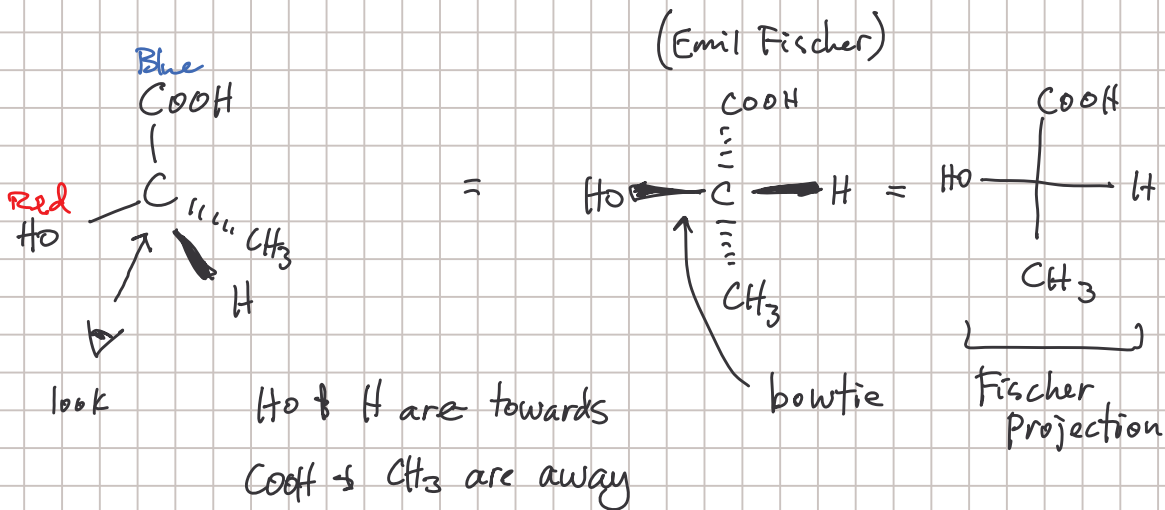 (Emil Fischer)
Blue
COOH
Red
HO
C
CH3
H
look
=
COOH
HO C H
CH3
bowtie
=
COOH
HO H
CH3
Fischer
Projection
HO & H are towards
COOH & CH3 are away